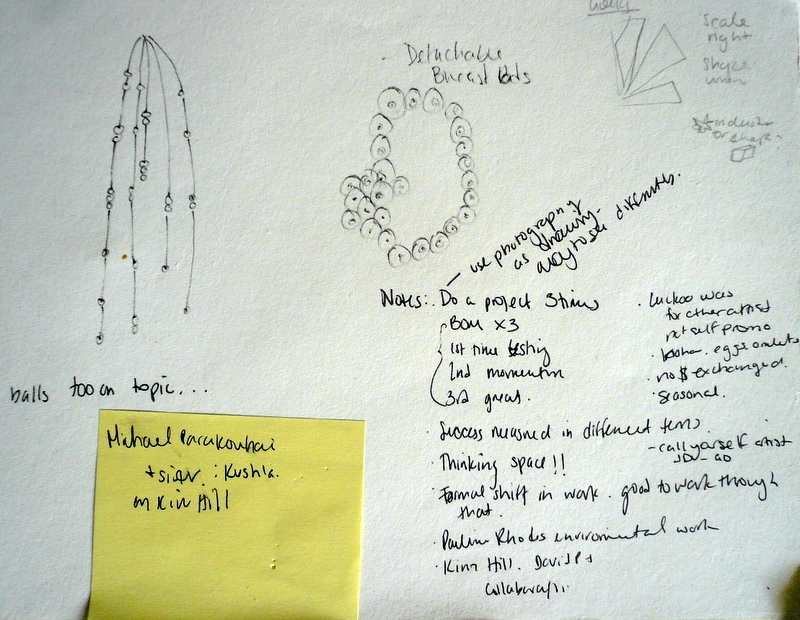 Detachable
Breast
scale
right
shape
use photography
as drawing.
way to see differently.
Notes: Do a project
BOM x3
1st time testing
2nd momentum
3rd great.
Success measured in different terms.
Thinking space!!
Formal shift in work. good to work through
that.
Pauline Rhodes enviromental work
Kim Hill. David
was
for other artist
not self promo
eggs
no $ exchanged.
seasonal.
- call yourself artist
balls too on topic...
Michael Parakowhai
+ sister : Kushla.
on Kim Hill